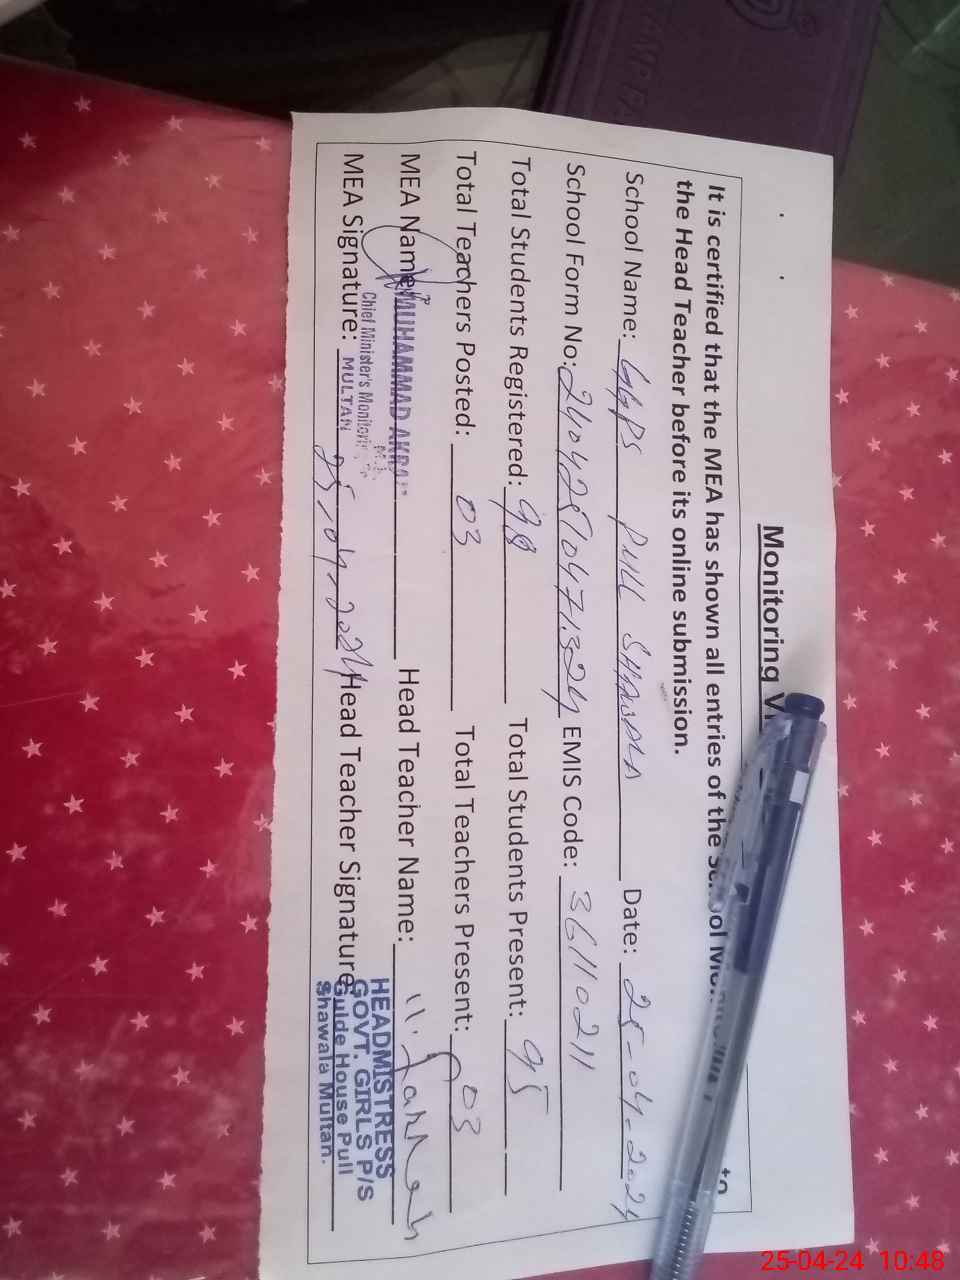 Monitoring
It is certified that the MEA has shown all entries of the to
the Head Teacher before its online submission.
School Name: GGPS PULL SHAWALA Date: 25-04-2024
School Form No: EMIS Code: 36110211
Total Students Registered: 98 Total Students Present: 95
Total Teachers Posted: 03 Total Teachers Present: 03
MEA Name: MUHAMMAD Head Teacher Name:
Chief Minister's
MEA Signature: MULTAN 25-04-2024 Head Teacher Signature:
HEADMISTRESS
GOVT. GIRLS P/S
Guide House Pull
Shawala Multan.
25-04-24 10:48